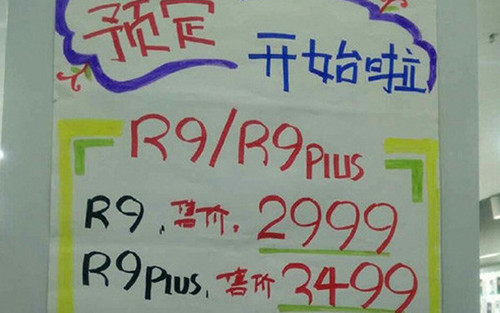 预定
开始啦
R9/R9Plus
R9，售价，2999
R9Plus，售价3499